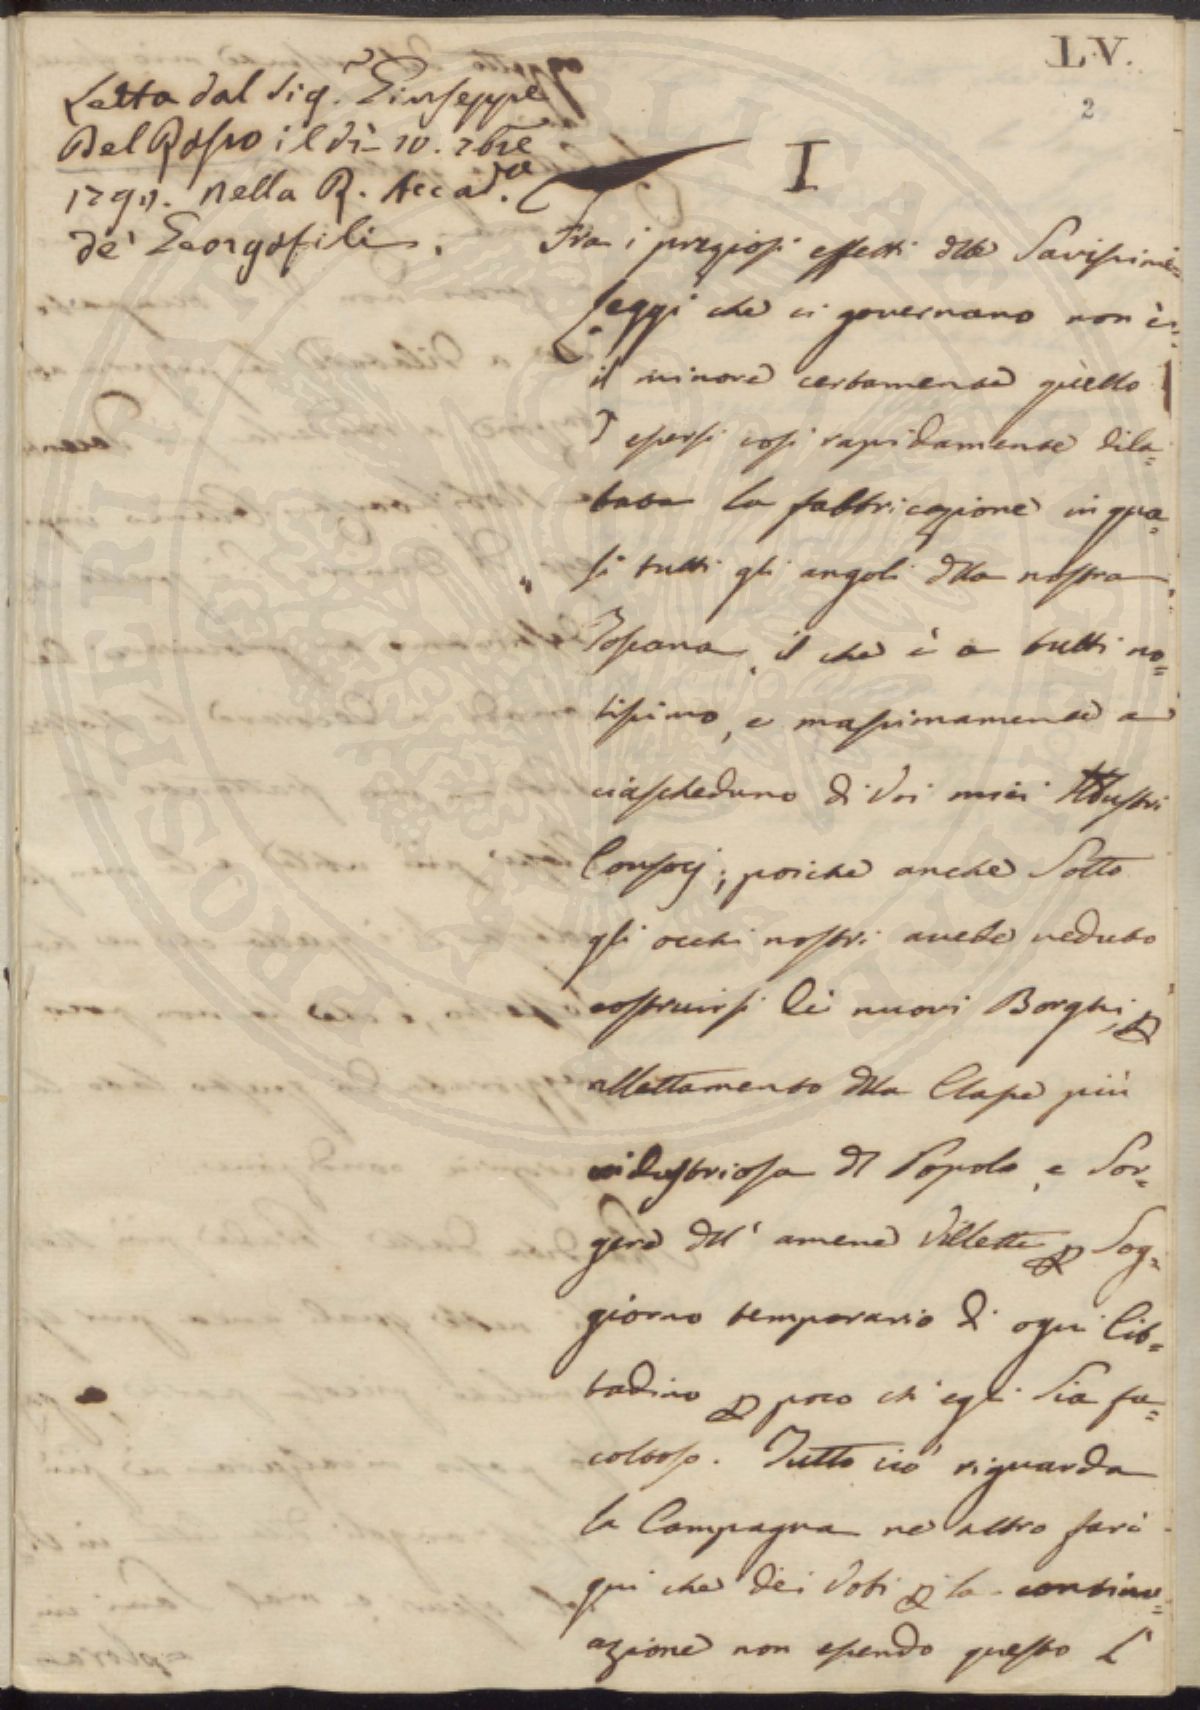 L.V.
2
Letta dal Sig.r Giuseppe
Del Rosso il dì 10. 7bre
179. nella R. Accad.a
de' Georgofili.
I
Fra i preziosi effetti dlle Savissime
Leggi che ci governano non è
il minore certamente quello
d' essersi così rapidamente dila=
tata la fabbricazione in qua=
si tutti gli angoli dlla nostra
Toscana, il che è a tutti no=
tissimo, e massimamente a
ciascheduno di Voi miei Illustri
Consocj; poiche anche Sotto
gli occhi nostri avete veduto
costruirsi dei nuovi Borghi, p
allettamento dlla Classe più
industriosa dl Popolo, e Sor=
gere dll' amene Villette p Sog=
giorno temporario di ogni Cit=
tadino p poco ch' egli Sia fa=
coltoso. Tutto ciò riguarda
la Campagna ne altro farò
qui che dei Voti p la continu=
azione non essendo questo l'
PROSPERITATI PUBLICAE AUGENDAE